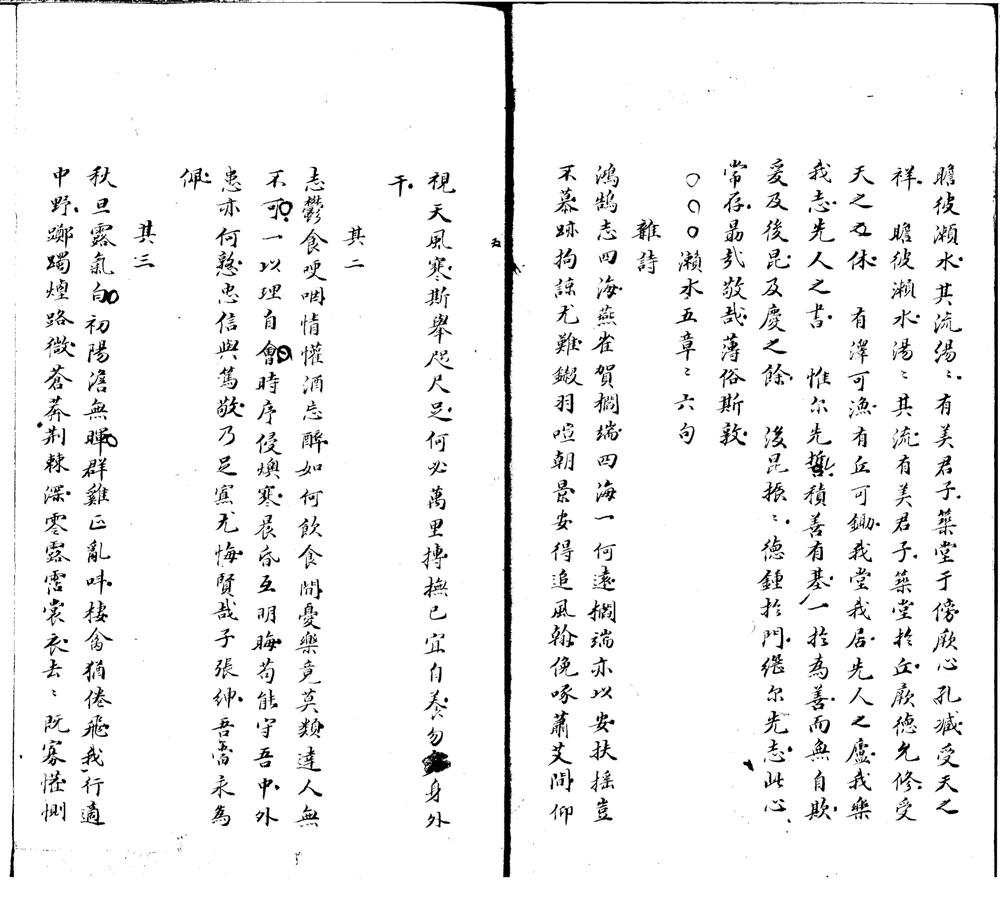 瞻彼瀬水其流湯〻有美君子築堂于傍厥心孔臧受天之
祥 瞻彼瀬水湯〻其流有美君子築堂於丘厥德允修受
天之休 有澤可漁有丘可鋤我堂我居先人之廬我樂
我志先人之書 惟尔先哲積善有基一於為善而無自欺
爰及後昆及慶之餘 後昆振〻德鍾於門継尔先志此心
常存勗哉敬哉薄俗斯敦
〇〇〇瀬水五章〻六句
雜詩
鴻鵠志四海燕雀賀搁端四海一何遠搁端亦以安扶搖豈
不慕跡拘諒尤難鎩羽喧朝景安得追風翰俛啄蕭艾間仰
視天風寒斯舉咫尺足何必萬里摶撫已宜自養勿身外
干
其二
志鬱食哽咽情懽酒忘醉如何飲食間憂樂竟莫類達人無
不可一以理自會時序侵燠寒晨昏互明晦苟能守吾中外
患亦何憝忠信與篤敬乃足寡尤悔賢哉子張紳吾當永為
佩
其三
秋旦露氣白初陽澹無暉群雞正亂呌棲禽猶倦飛我行適
中野躑躅煙路微蒼莽荆棘深零露霑裳衣去〻既寡惬惻